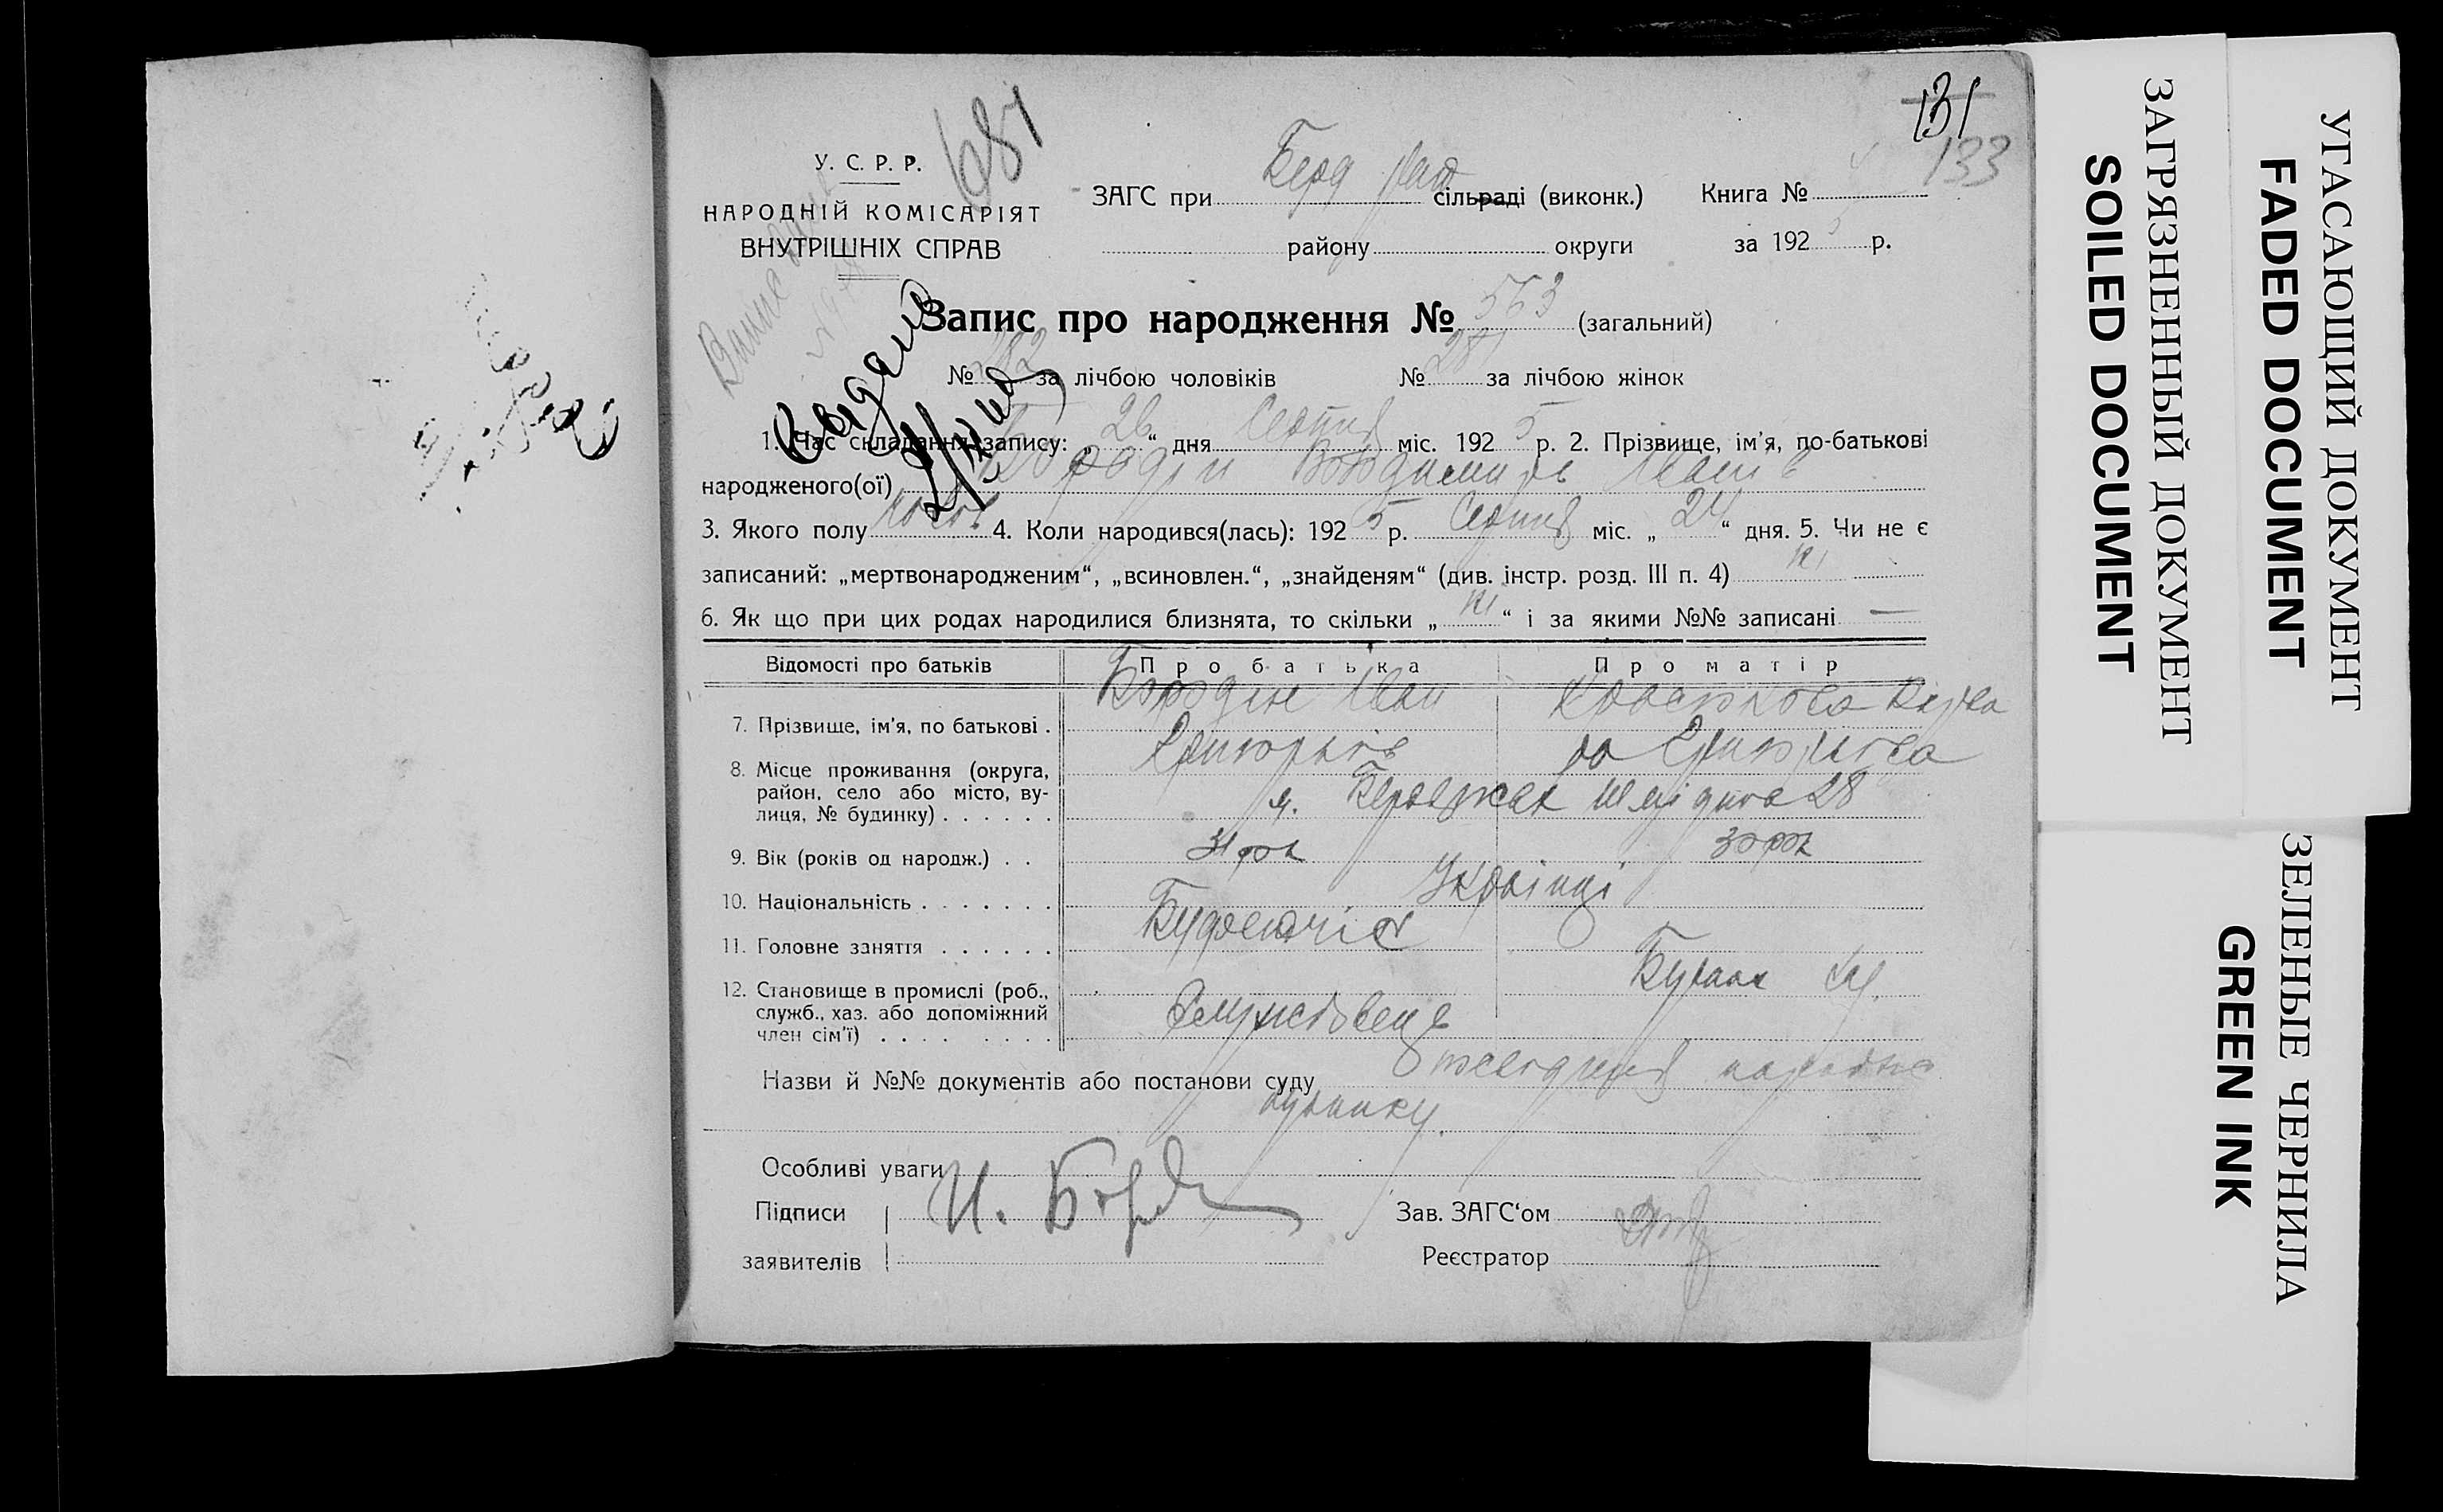 131
133
681
У. С. Р. Р.
НАРОДНІЙ КОМІСАРІЯТ
ВНУТРІШНІХ СПРАВ
ЗАГС при Берд сільраді (виконк.) Книга №
району округи за 1925 р.
Запис про народження № 563 (загальний)
№ 282 за лічбою чоловіків № 281 за лічбою жінок
1. Час складання запису: „26“ дня Серпня міс. 1925 р. 2. Прізвище, ім’я, по-батькові
народженого(ої) Бородін Володимир Іванів
3. Якого полу чолов 4. Коли народився(лась): 1925 р. Серпня міс. „24“ дня. 5. Чи не є
записаний: „мертвонародженим“, „всиновлен.“, „знайденям“ (див. інстр. розд. III п. 4) ні
6. Як що при цих родах народилися близнята, то скільки „ні“ і за якими №№ записані —
Відомості про батьків Про батька Про матір
7. Прізвище, ім’я, по батькові . Бородін Іван
Григорьев
8. Місце проживання (округа,
район, село або місто, ву-
лиця, № будинку) . . . . . . м. 28
9. Вік (років од народж.) . . 31 рок 30 рок
10. Національність . . . . . . . Українці
11. Головне заняття . . . . . .
12. Становище в промислі (роб.,
служб., хаз. або допоміжний
член сім’ї) . . . . . . . . Службовець
Назви й №№ документів або постанови суду
будинку.
Особливі уваги
Підписи И. Бород Зав. ЗАГС‘ом
заявителів Реєстратор
УГАСАЮЩИЙ ДОКУМЕНТ
FADED DOCUMENT
ЗАГРЯЗНЕННЫЙ ДОКУМЕНТ
SOILED DOCUMENT
ЗЕЛЕНЫЕ ЧЕРНИЛА
GREEN INK